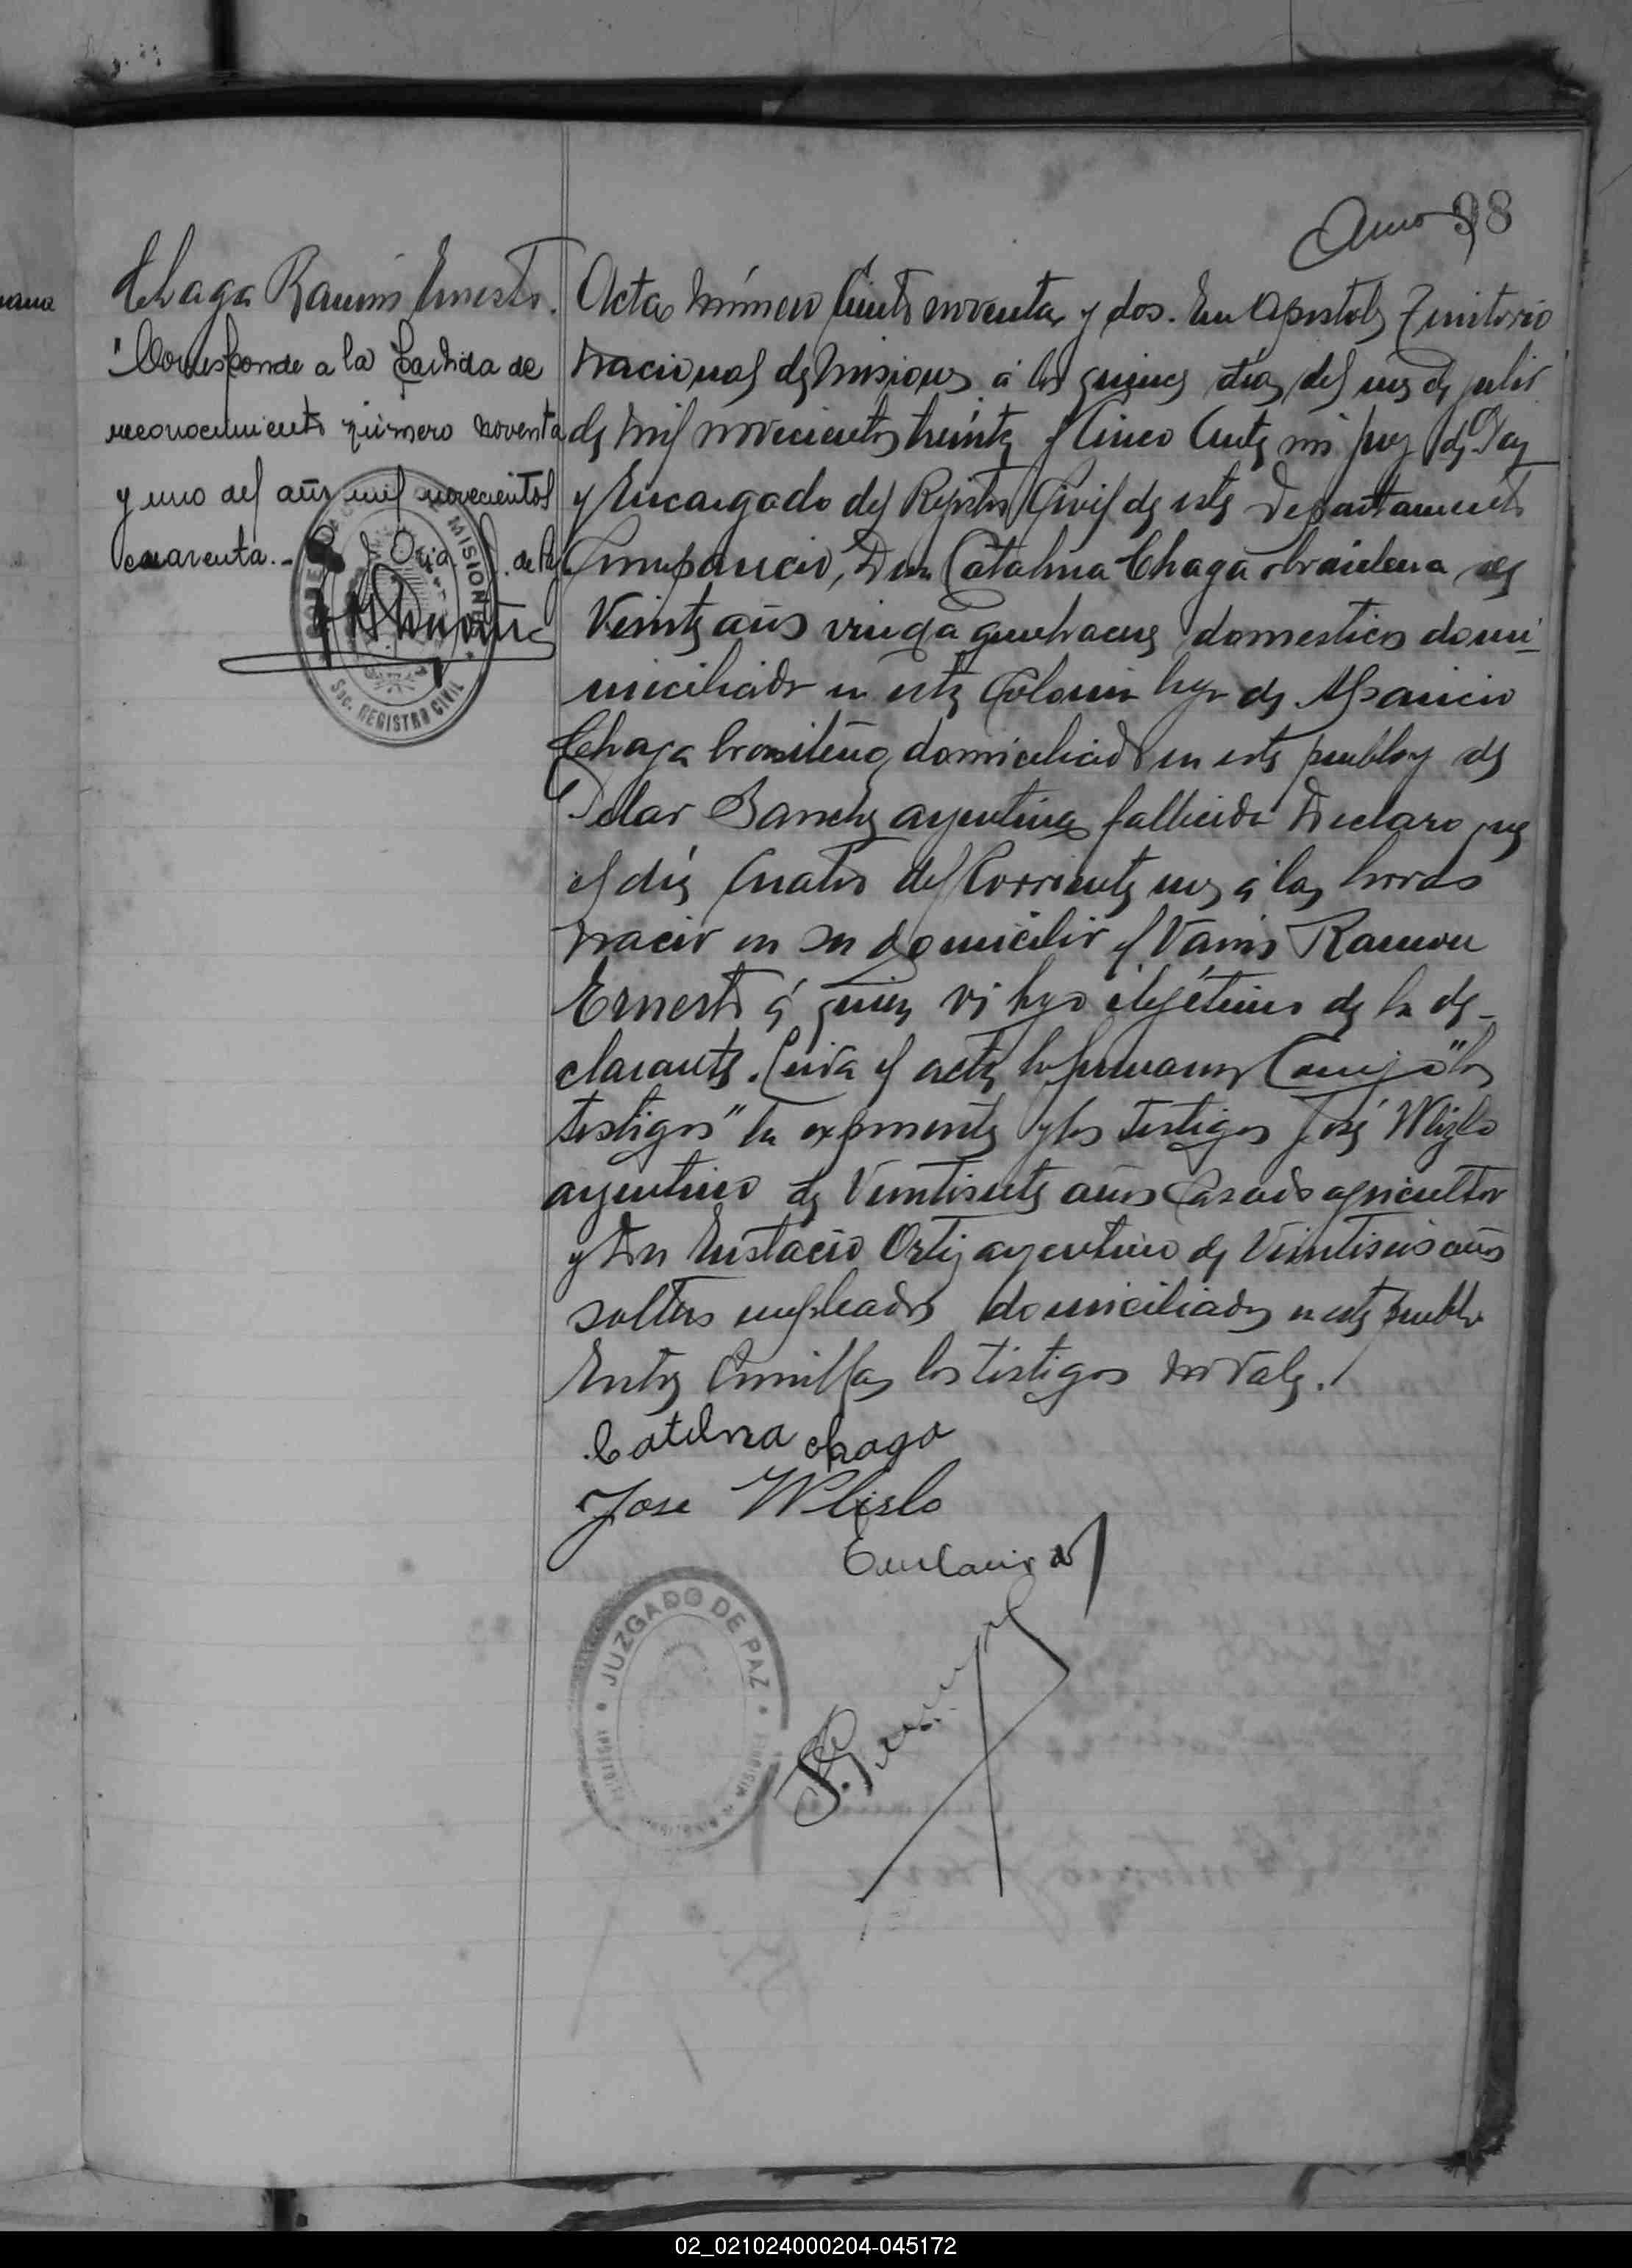 98
Chaga Ramón Ernesto.
"Corresponde a la partida de
reconocimiento número noventa
y uno del año mil novecientos
cuarenta.-
MISIONES
Sec. REGISTRO CIVIL
Acta número ciento noventa y dos. En Apostoles Territorio
nacional de Misiones á los quince dias del mes de julio
de mil novecientos treinta y cinco Ante mi Juez de Paz
y Encargado del Registro Civil de este Departamento
Compareció, Catalina Chaga brasilena de
Veinte años viuda quehaceres domesticos domi-
miciliado en esta Colonia hija de Aparicio
Chaga brasileño, domiciliado en este pueblo y de
Pilar Sanche argentina fallecida Declaro que
el dia cuatro del Corriente mes á las horas
nacio en su domicilio el Varon Ramon
Ernesto á quien vi hijo ilegítimo de la de-
clarante. Leida el acta la firmaron Conmigo "los
testigos" la exponente y los testigos José Wlislo
argentino de Veintisiete años Casado agricultor
y Don Eustacio Ortiz argentino de Veintiseis años
soltero empleado domiciliados en este pueblo
Entre Comillas los testigos no Vale.
Catalina chaga
Jose Wlislo
JUZGADO DE PAZ
02_021024000204-045172